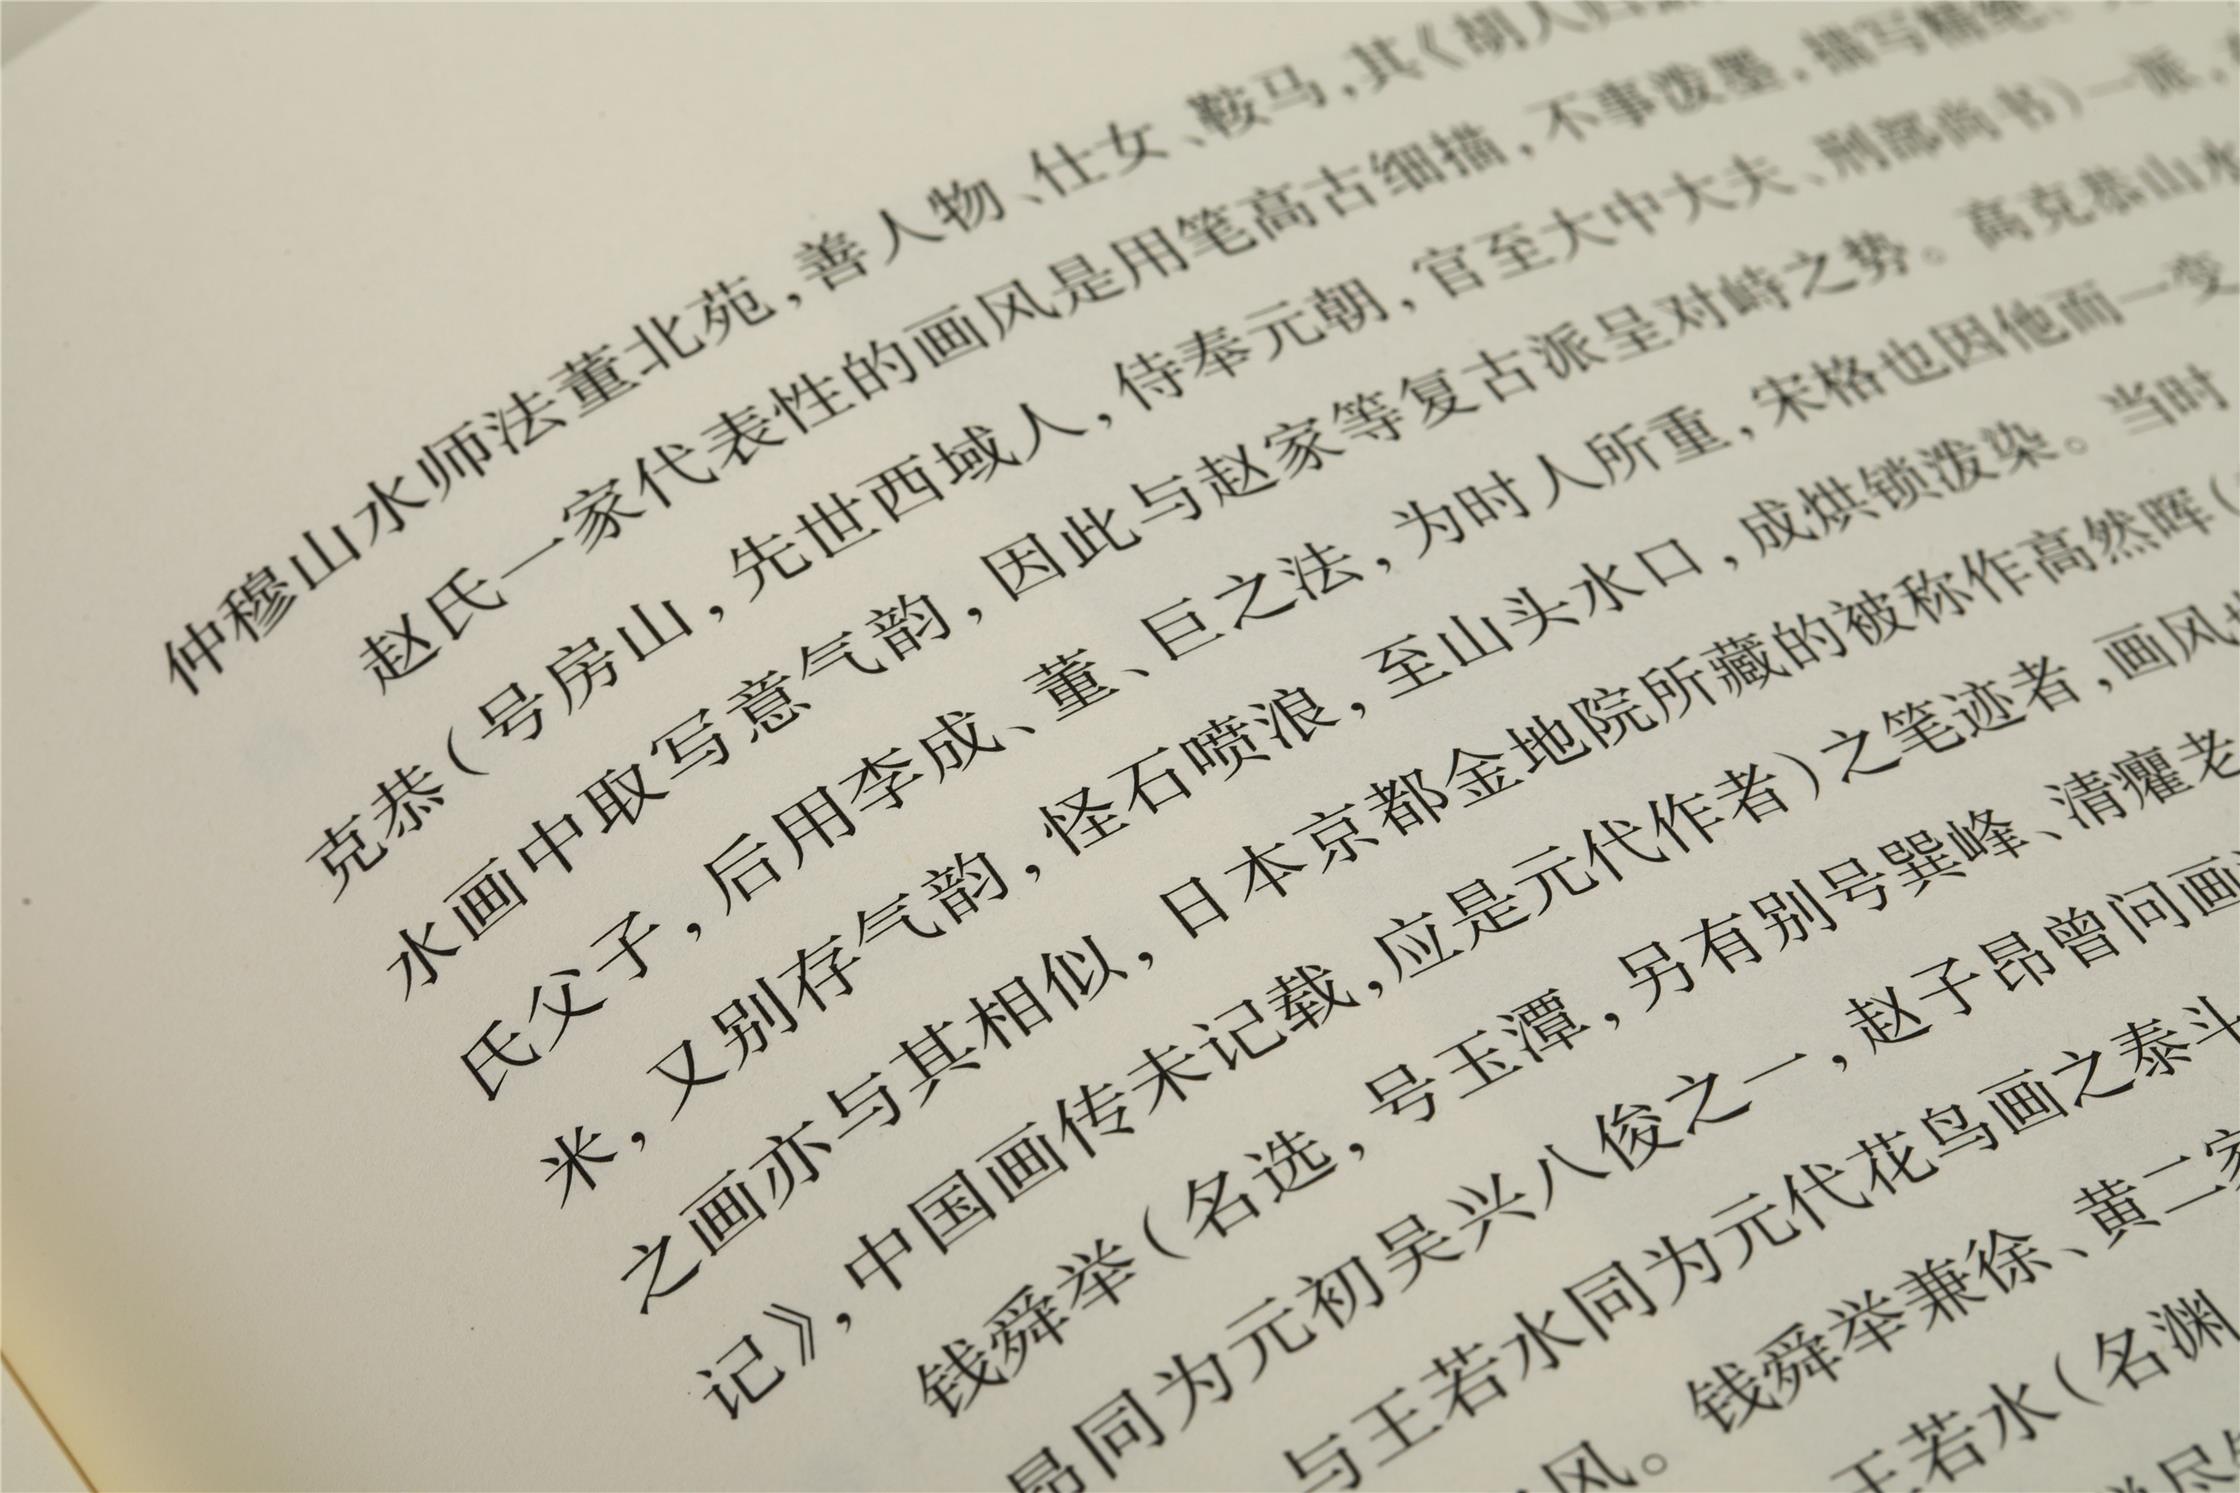 仲穆山水师法董北苑，善人物、仕女、鞍马，其《胡人归
赵氏一家代表性的画风是用笔高古细描，不事泼墨，描写精绝。
克恭（号房山，先世西域人，侍奉元朝，官至大中大夫、刑部尚书）一派，
水画中取写意气韵，因此与赵家等复古派呈对峙之势。高克恭山水
氏父子，后用李成、董、巨之法，为时人所重，宋格也因他而一变
米，又别存气韵，怪石喷浪，至山头水口，成烘锁泼染。当时
之画亦与其相似，日本京都金地院所藏的被称作高然晖（
记》，中国画传未记载，应是元代作者）之笔迹者，画风
钱舜举（名选，号玉潭，另有别号巽峰、清癯老
昂同为元初吴兴八俊之一，赵子昂曾问画
与王若水同为元代花鸟画之泰斗
风。钱舜举兼徐、黄二家
王若水（名渊